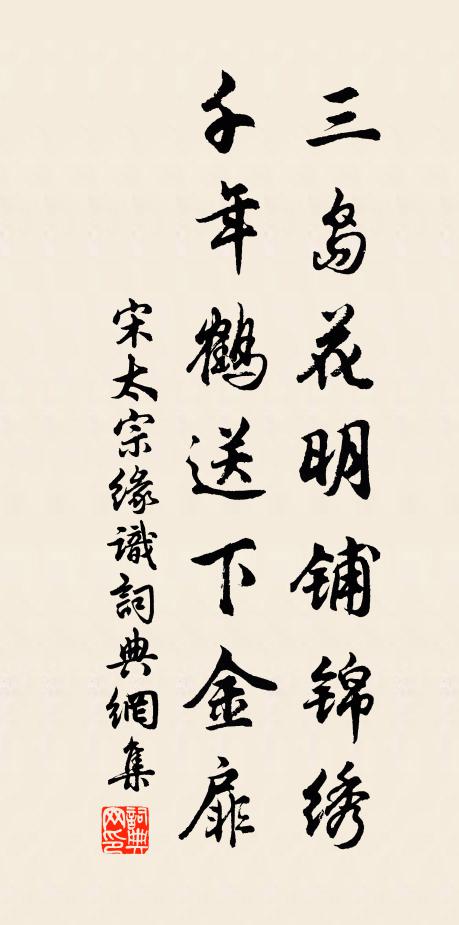 三岛花明铺锦绣
千年鹤送下金扉
宋太宗缘識詞典網集
詞典网印